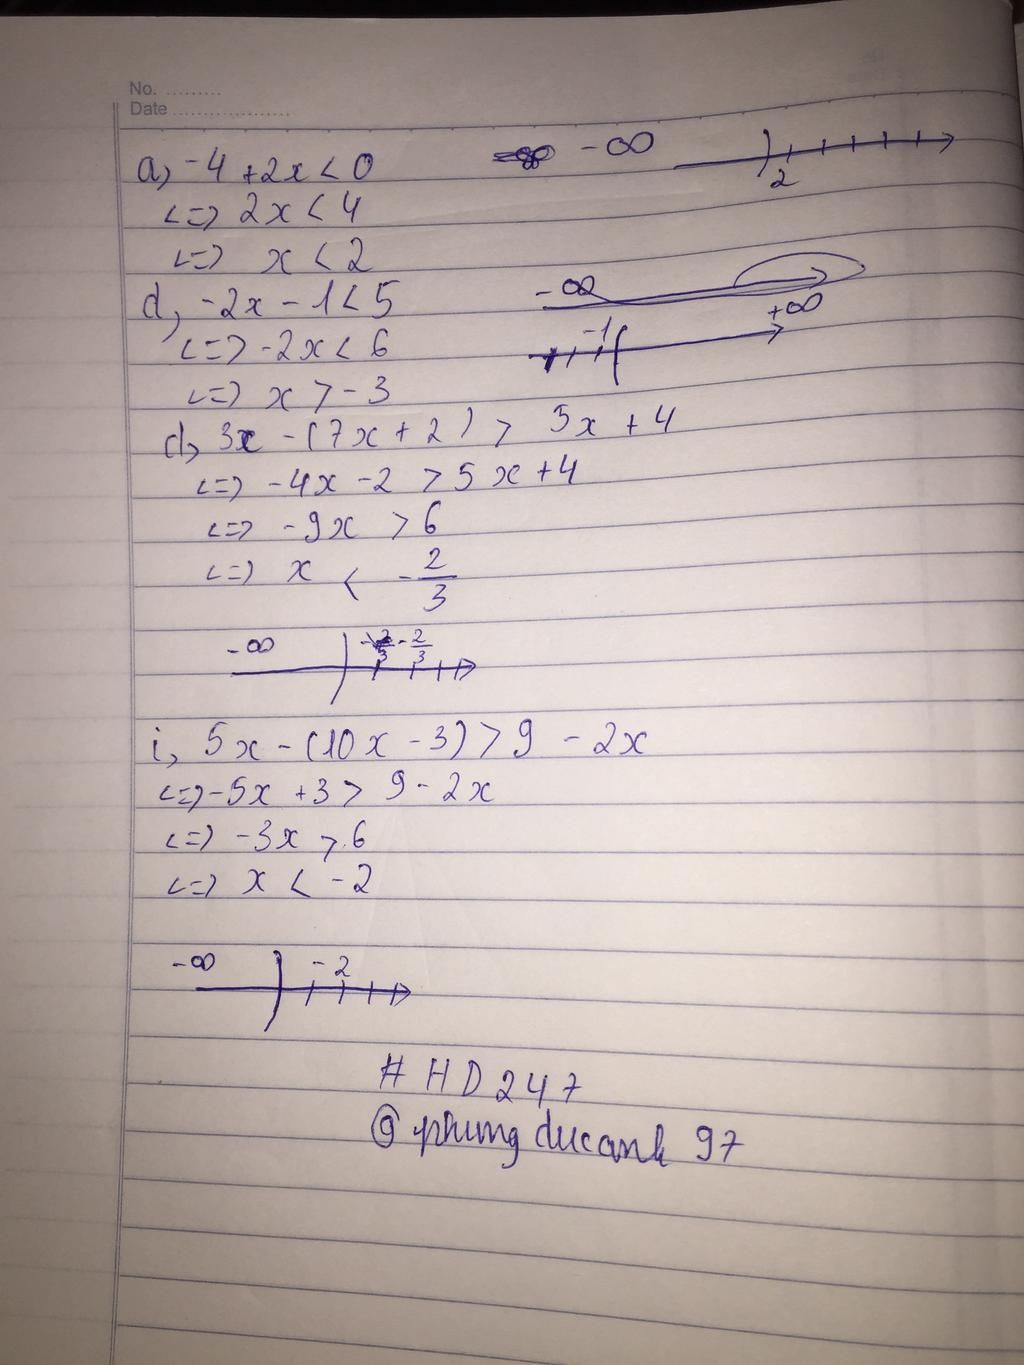 No. .........
Date ...................
a, -4 + 2x < 0
-∞
2
<=> 2x < 4
<=> x < 2
d, -2x - 1 < 5
-∞
+∞
<=> -2x < 6
-1
<=> x > -3
d, 3x - (7x + 2) > 5x + 4
<=> -4x - 2 > 5x + 4
<=> -9x > 6
<=> x < -2/3
-∞ -2/3
i, 5x - (10x - 3) > 9 - 2x
<=> -5x + 3 > 9 - 2x
<=> -3x > 6
<=> x < -2
-∞ -2
# HD 247
@ phungducanh 97